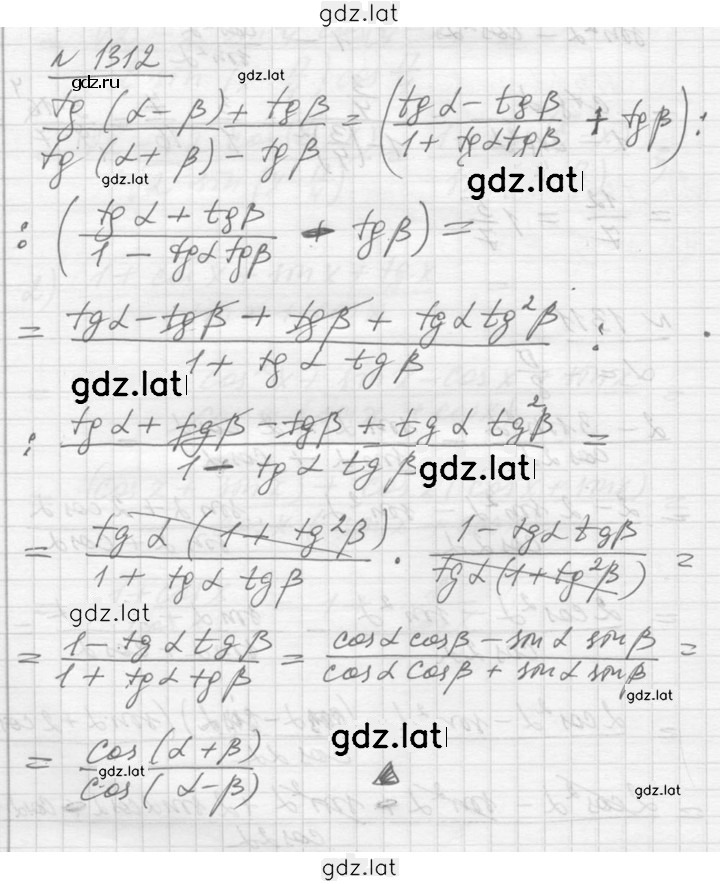 gdz.lat
N 1312
gdz.ru
gdz.lat
(tg (α - β) + tg β) / (tg (α + β) - tg β) = ((tg α - tg β) / (1 + tg α tg β) + tg β) :
gdz.lat
gdz.lat
: ((tg α + tg β) / (1 - tg α tg β) - tg β) =
= (tg α - tg β + tg β + tg α tg² β) / (1 + tg α tg β) :
gdz.lat
: (tg α + tg β - tg β + tg α tg² β) / (1 - tg α tg β) =
gdz.lat
= (tg α (1 + tg² β)) / (1 + tg α tg β) · (1 - tg α tg β) / (tg α (1 + tg² β)) =
gdz.lat
= (1 - tg α tg β) / (1 + tg α tg β) = (cos α cos β - sin α sin β) / (cos α cos β + sin α sin β) =
gdz.lat
= cos (α + β) / cos (α - β)
gdz.lat
gdz.lat
gdz.lat
gdz.lat